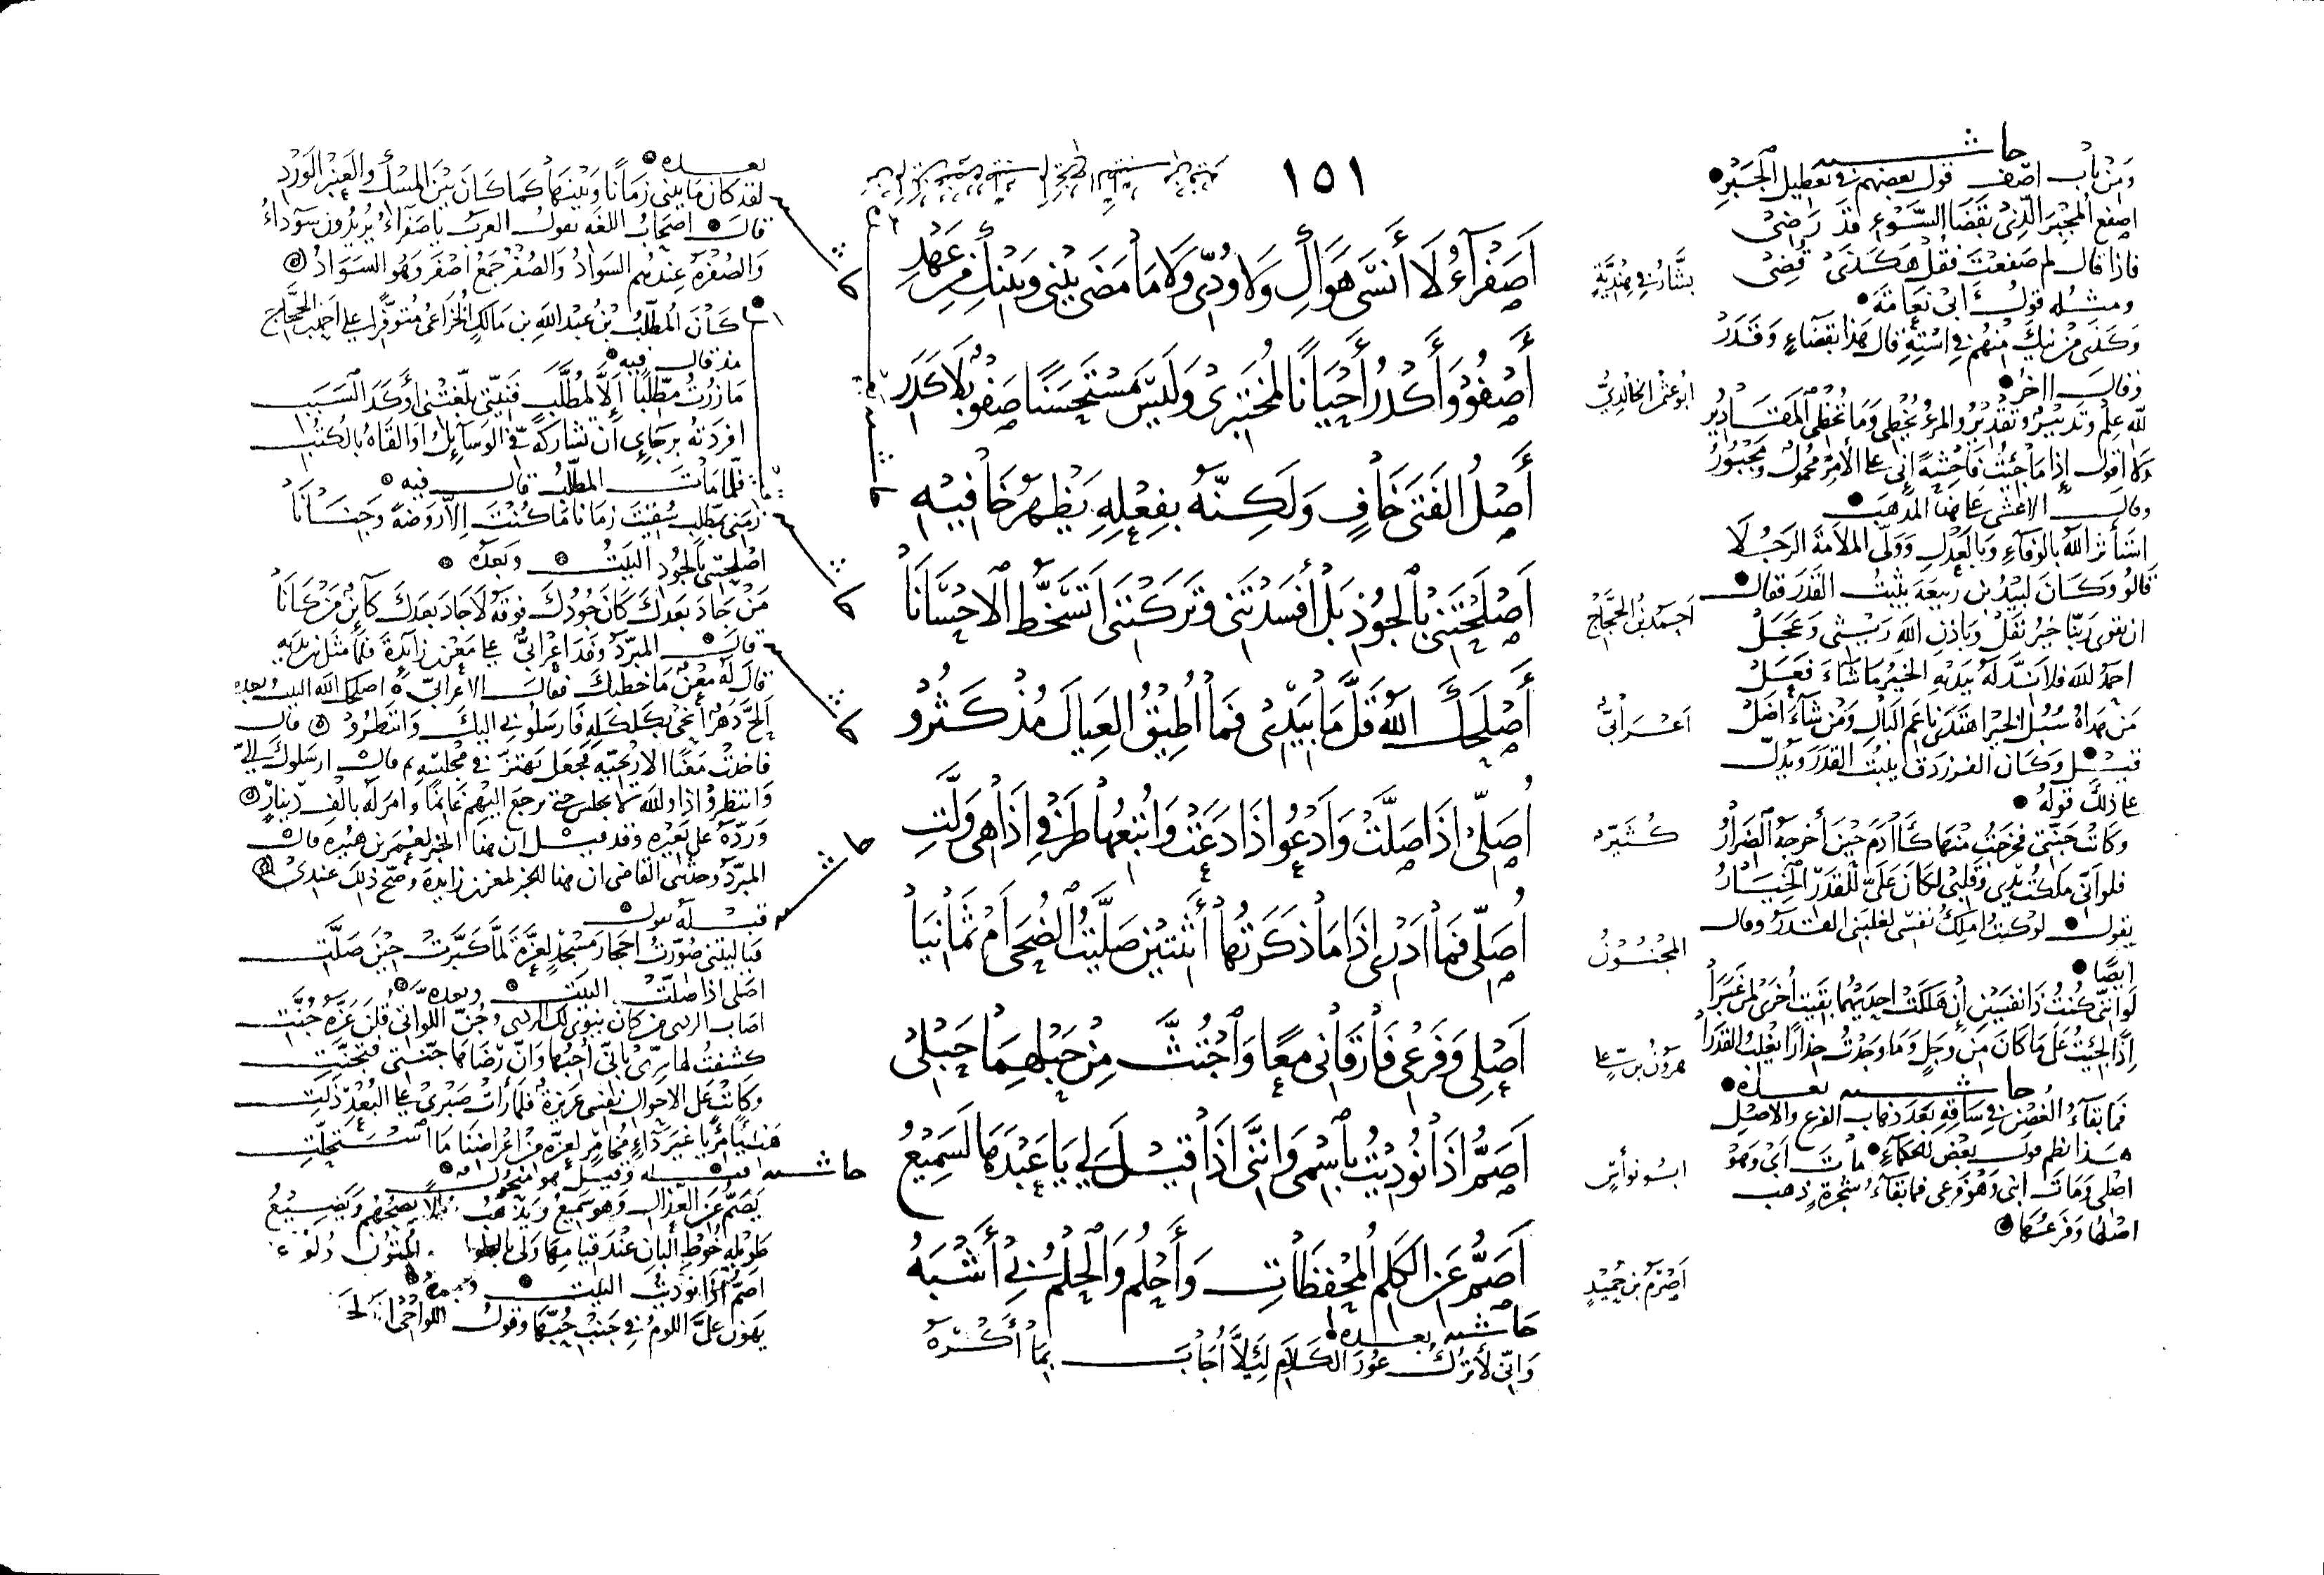 ١٥١
أَصَفْرَآءُ لَا أَنْسَى هَوَاكِ وَلَا وُدِّي وَلَا مَا مَضَى بَيْنِي وَبَيْنَكِ مِنْ عَهْدِ
أَصْفُو وَأَكْدُرُ أَحْيَانًا لِمُخْتَبِرِي وَلَيْسَ مُسْتَحْسَنًا صَفْوٌ بِلَا كَدَرِ
أَصْلُ الْفَتَى خَافٍ وَلَكِنَّهُ بِفِعْلِهِ يَظْهَرُ خَافِيْهِ
أَصْلَحْتَنِي بِالْجُودِ بَلْ أَفْسَدْتَنِي وَتَرَكْتَنِي أَتَسَخَّطُ الْاحْسَانَا
أَصْلَحَكَ اللهُ قَلَّ مَا بِيَدِي فَمَا أُطِيْقُ الْعِيَالَ مُذْ كَثُرُو
أُصَلِّي إِذَا صَلَّتْ وَأَدْعُو إِذَا دَعَتْ وَأُتْبِعُهَا طَرْفِي إِذَا هِيَ وَلَّتِ
أُصَلِّي فَمَا أَدْرِي إِذَا مَا ذَكَرْتُهَا أَثِنْتَيْنِ صَلَّيْتُ الضُّحَى أَمْ ثَمَانِيَا
أَصْلِي وَفَرْعِي فَارَقَانِي مَعًا وَاجْتُثَّ مِنْ حَبْلِهِمَا حَبْلِي
أَصَمُّ إِذَا نُودِيْتُ بِاسْمِي وَإِنَّنِي إِذَا قِيْلَ لِي يَا عَبْدَهَا لَسَمِيْعُ
أَصَمُّ عَنِ الْكَلِمِ الْمُحْفِظَاتِ وَأَحْلُمُ وَالْحِلْمُ بِي أَشْبَهُ
حاشيه بعده
وَإِنِّي لَأَتْرُكُ عُورَ الْكَلَامِ لِئَلَّا أُجَابَ بِمَا أَكْرَهُ
بشار في هنديّة
ابو عثمن الخالديّ
احمد بن الحجاج
اعرابيّ
كثيّر
المجنون
هرون بن علي
ابو نواس
أصرم بن حميد
حاشيه
ومن باب اصف قول بعضهم في تعطيل الجبر
اصفع المجبر الذي بقضا السوء قد رضي
فاذا قال لم صفعت فقل هكذى قضي
ومثله قول ابي نعامة
وقال اخر
لله علم وتدبير وتقدير والمرء يخطي وما تخطي المقادير
ولا اقول إذا ما جئت فاحشة إني على الأمر محمول ومجبور
وقال الاعشى على هذا المذهب
استأثر الله بالوفاء وبالعدل وولى الملامة الرجلا
قالو وكان لبيد بن ربيعة يثبت القدر فقال
ان تقوى ربنا خير نفل وباذن الله ريثي وعجل
احمد الله فلا ند له بيديه الخير ما شاء فعل
من هداه سبل الخير اهتدى ناعم البال ومن شاء اضل
قيل وكان الفرزدق يثبت القدر ويدل
على ذلك قوله
وكانت جنتي فخرجت منها كآدم حين أخرجه الضرار
فلو أني ملكت يدي وقلبي لكان علي للقدر الخيار
يقول لو كنت املك نفسي لغلبني القدر وقال
ايضا
لو انني كنت ذا نفسين إن هلكت احديهما بقيت أخرى لمن غبرا
إذا لجئت على ما كان من وجل وما وجدت حذارا يغلب القدرا
حاشيه بعده
فما بقاء الغصن في ساقه بعد ذهاب الفرع والاصل
هذا نظم قول بعض الحكماء مات ابي وهو
اصلي ومات ابني وهو فرعي فما بقاء شجرة ذهب
اصلها وفرعها
بعده
لقد كان ما بيني زمانا وبينها كما كان بين المسك والعنبر الورد
قال اصحاب اللغه تقول العرب يا صفراء يريدون سوداء
والصفرة عندهم السواد والصفر جمع أصفر وهو السواد
كان المطلب بن عبد الله بن مالك الخزاعي
قال فيه
ما زرت مطلبا إلا لمطلب
افردته برجاء أن تشاركه فيّ الوسائل او القاه بالكتب
فلما مات المطلب قال فيه
زمني بمطلب سقيت زمانا ما كنت إلا روضة وجنانا
اصلحتني بالجود البيت وبعده
من جاد بعدك كان جودك فوقه لا جاد بعدك كائن من كانا
قال المبرد وفد اعرابي على معن بن زايدة فلما مثل بين يديه
قال له معن ما خطبك فقال الاعرابي اصلحك الله البيت وبعده
ألح دهر أنحى بكلكله فارسلوني اليك وانتظرو قال
فاخذت معنا الاريحية فجعل يهتز في مجلسه ثم قال ارسلوك إلي
وانتظرو اذا والله لا تجلس حتى ترجع اليهم غانما وامر له بالف دينار
ورده على بعيره وقد قيل ان هذا الخبر لعمر بن هبيرة قال
المبرد وحدثني القاضي ان هذا الخبر لمعن بن زايدة وصح ذلك عندي
حاشيه
قبله يقول
فيا ليتني صورت احجار مسجد لعزة لما كبرت حين صلت
اصلي اذا صلت البيت وبعده
كشفت لها سري باني أحبها وان رضاها جنتي فتجنت
وكانت على الاحوال نفسي عزيزة فلما رأت صبري على البعد ذلت
هنيئا مريا غير داء مخامر لعزة من اعراضنا ما استحلت
حاشيه
يصم عن العذال وهو سميع
اصم إذا نوديت البيت
يهون علي اللوم في جنب حبها وقول